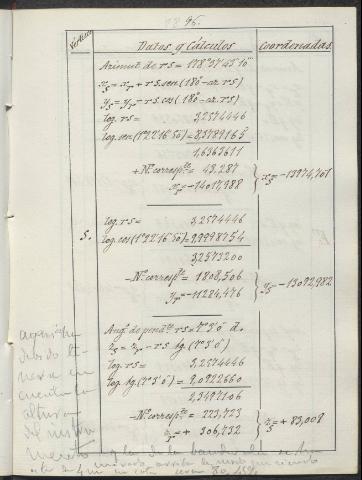 95.
Vértices
Datos y Cálculos
Coordenadas
Azimut de rs = 178°37'43"10'''
x_s = x_r + rs. sen (180°-az. rs)
y_s = y_r - rs. cos (180°-az. rs)
log. rs = 3,2574446
log. sen (1°22'16"50''') = 8,3789165
1,6363611
+ N.º corresp.te = 43,287
x_r = -14017,988 } x_s = -13974,701
S.
log. rs = 3,2574446
log. cos (1°22'16"50''') = 9,9998754
3,2573200
- N.º corresp.te = 1808,506
y_r = -11284,476 } y_s = -13092,982
Ang. de pend.te rs = 7°3'0" d.
z_s = z_r - rs tg. (7°3'0")
log. rs = 3,2574446
log. tg. (7°3'0") = 9,0922660
2,3497106
- N.º corresp.te = 223,723
z_r = + 306,732 } z_s = + 83,008
aqui se ha
en
cuenta la
altura
del instru
mento y la de la